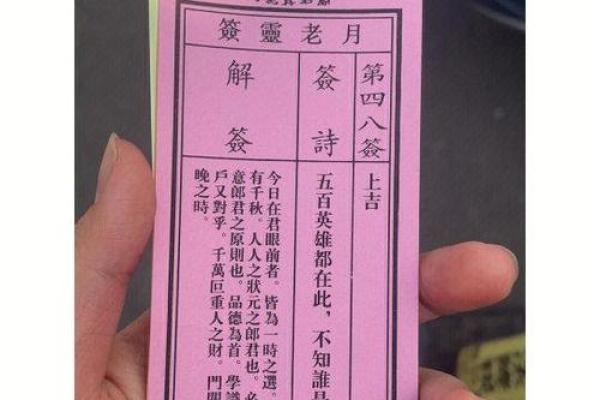 月老靈簽
第四八簽
上吉
簽詩
五百英雄都在此，不知誰是
解簽
今日在君眼前者。皆為一時之選。
有千秋。人人之狀元之郎君也。必
意郎君之原則也。品德為首。學識
戶又對乎。千萬叵重人之財。門
晚之時。